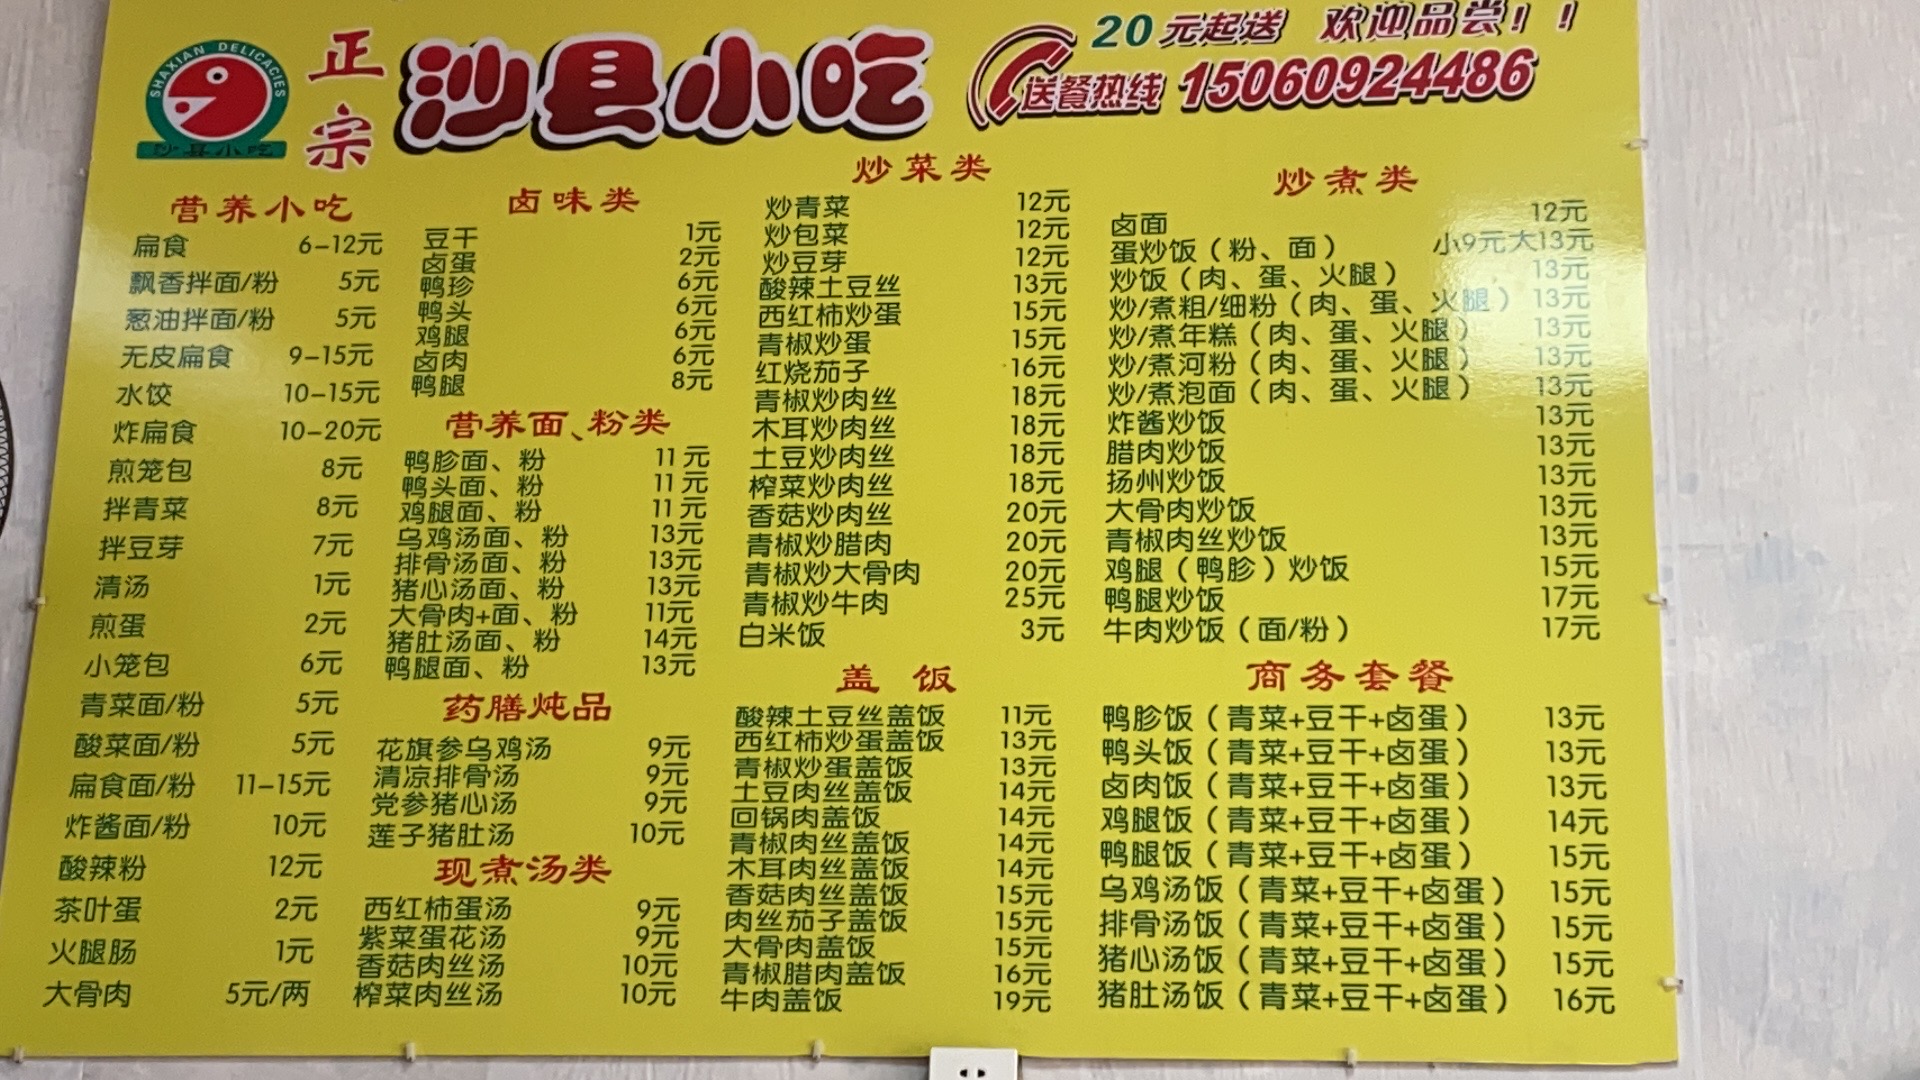 SHAXIAN DELICACIES
沙县小吃
正宗
沙县小吃
20元起送 欢迎品尝!!
送餐热线 15060924486
营养小吃
扁食 6-12元
飘香拌面/粉 5元
葱油拌面/粉 5元
无皮扁食 9-15元
水饺 10-15元
炸扁食 10-20元
煎笼包 8元
拌青菜 8元
拌豆芽 7元
清汤 1元
煎蛋 2元
小笼包 6元
青菜面/粉 5元
酸菜面/粉 5元
扁食面/粉 11-15元
炸酱面/粉 10元
酸辣粉 12元
茶叶蛋 2元
火腿肠 1元
大骨肉 5元/两
卤味类
豆干 1元
卤蛋 2元
鸭珍 6元
鸭头 6元
鸡腿 6元
卤肉 6元
鸭腿 8元
营养面、粉类
鸭胗面、粉 11元
鸭头面、粉 11元
鸡腿面、粉 11元
乌鸡汤面、粉 13元
排骨汤面、粉 13元
猪心汤面、粉 13元
大骨肉+面、粉 11元
猪肚汤面、粉 14元
鸭腿面、粉 13元
药膳炖品
花旗参乌鸡汤 9元
清凉排骨汤 9元
党参猪心汤 9元
莲子猪肚汤 10元
现煮汤类
西红柿蛋汤 9元
紫菜蛋花汤 9元
香菇肉丝汤 10元
榨菜肉丝汤 10元
炒菜类
炒青菜 12元
炒包菜 12元
炒豆芽 12元
酸辣土豆丝 13元
西红柿炒蛋 15元
青椒炒蛋 15元
红烧茄子 16元
青椒炒肉丝 18元
木耳炒肉丝 18元
土豆炒肉丝 18元
榨菜炒肉丝 18元
香菇炒肉丝 20元
青椒炒腊肉 20元
青椒炒大骨肉 20元
青椒炒牛肉 25元
白米饭 3元
盖饭
酸辣土豆丝盖饭 11元
西红柿炒蛋盖饭 13元
青椒炒蛋盖饭 13元
土豆肉丝盖饭 14元
回锅肉盖饭 14元
青椒肉丝盖饭 14元
木耳肉丝盖饭 14元
香菇肉丝盖饭 15元
肉丝茄子盖饭 15元
大骨肉盖饭 15元
青椒腊肉盖饭 16元
牛肉盖饭 19元
炒煮类
卤面 12元
蛋炒饭(粉、面) 小9元大13元
炒饭(肉、蛋、火腿) 13元
炒/煮粗/细粉(肉、蛋、火腿) 13元
炒/煮年糕(肉、蛋、火腿) 13元
炒/煮河粉(肉、蛋、火腿) 13元
炒/煮泡面(肉、蛋、火腿) 13元
炸酱炒饭 13元
腊肉炒饭 13元
扬州炒饭 13元
大骨肉炒饭 13元
青椒肉丝炒饭 13元
鸡腿(鸭胗)炒饭 15元
鸭腿炒饭 17元
牛肉炒饭(面/粉) 17元
商务套餐
鸭胗饭(青菜+豆干+卤蛋) 13元
鸭头饭(青菜+豆干+卤蛋) 13元
卤肉饭(青菜+豆干+卤蛋) 13元
鸡腿饭(青菜+豆干+卤蛋) 14元
鸭腿饭(青菜+豆干+卤蛋) 15元
乌鸡汤饭(青菜+豆干+卤蛋) 15元
排骨汤饭(青菜+豆干+卤蛋) 15元
猪心汤饭(青菜+豆干+卤蛋) 15元
猪肚汤饭(青菜+豆干+卤蛋) 16元